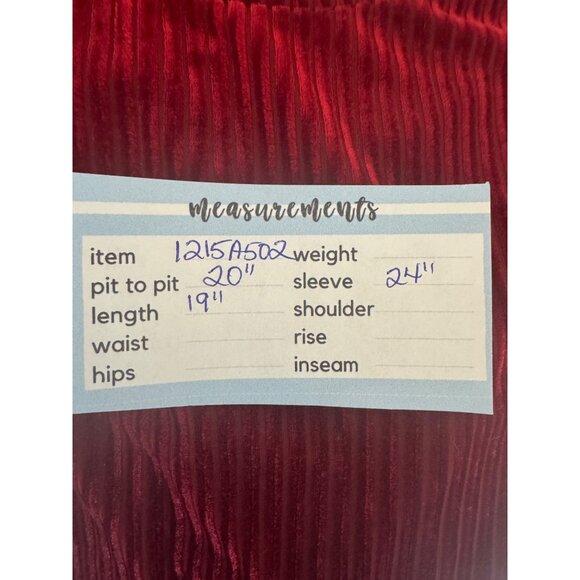 measurements
item 1215A502 weight
pit to pit 20" sleeve 24"
length 19" shoulder
waist rise
hips inseam